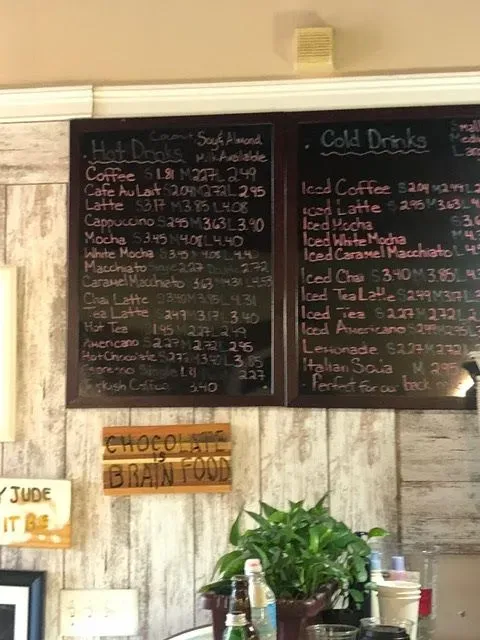 Coconut, Soy & Almond
Hot Drinks Milk Available
Coffee S 1.81 M 2.27 L 2.49
Cafe Au Lait S 2.04 M 2.72 L 2.95
Latte S 3.17 M 3.85 L 4.08
Cappuccino S 2.95 M 3.63 L 3.90
Mocha S 3.45 M 4.08 L 4.40
White Mocha S 3.45 M 4.08 L 4.40
Macchiato Single 2.27 Double 2.72
Caramel Macchiato 3.63 M 4.31 L 4.53
Chai Latte S 3.40 M 3.85 L 4.31
Tea Latte S 2.49 M 3.17 L 3.40
Hot Tea 1.95 M 2.27 L 2.49
Americano S 2.27 M 2.72 L 2.95
Hot Chocolate S 2.72 M 3.40 L 3.85
Espresso Single 1.81 2.27
Turkish Coffee 3.40
Cold Drinks
Iced Coffee S 2.04 M 2.49 L 2
Iced Latte S 2.95 M 3.63 L 4
Iced Mocha S 3.6
Iced White Mocha M 4.
Iced Caramel Macchiato L 4.
Iced Chai S 3.40 M 3.85 L 4.
Iced Tea Latte S 2.49 M 3.17 L 3
Iced Tea S 2.27 M 2.72 L 2
Iced Americano
Lemonade S 2.27 M 2.72
Italian Soda M 2.95
Perfect for our back
CHOCOLATE
IS
BRAIN FOOD
Y JUDE
IT BE